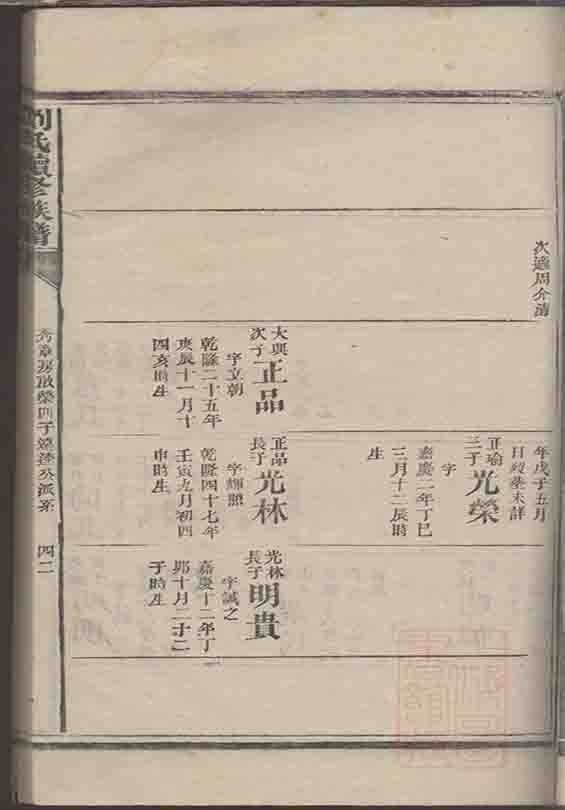 次適周介清
年戊子五月
日歿塟未詳
正瑜
三子
光榮
字
嘉慶二年丁巳
三月十二辰時
生
大興
次子
正品
字立朝
乾隆二十五年
庚辰十一月十
四亥時生
正品
長子
光林
字輝照
乾隆四十七年
壬寅九月初四
申時生
光林
長子
明貴
字誠之
嘉慶十二年丁
卯十月二十二
子時生
劉氏續修族譜
四二